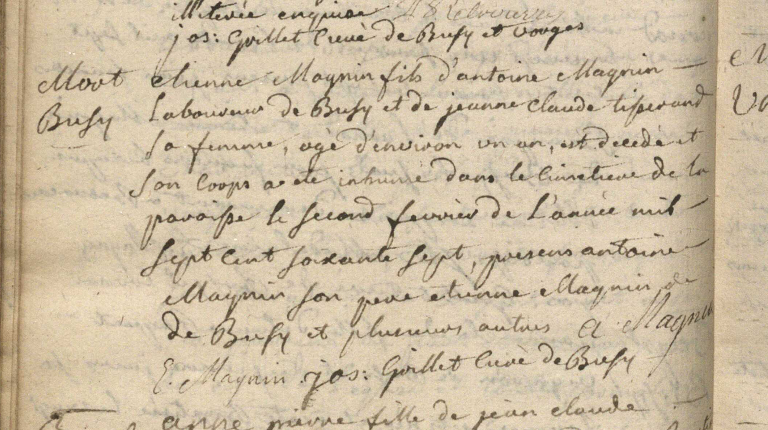 illiterée enquise
jos: Goillet Curé de Busy et Vorges
Mort etienne Magnin fils d'antoine Magnin
Busy Laboureur de Busy et de jeanne claude tisserand
sa femme, agé d'environ un an, est decedé et
son corps a eté inhumé dans le Cimetieve de la
paroisse le second fevrier de L'année mil
sept cent soixante sept, presens antoine
Magnin son pere etienne Magnin de
de Busy et plusieurs autres a Magnin
E. Magnin jos: Goillet Curé de Busy
anne pierre fille de jean claude